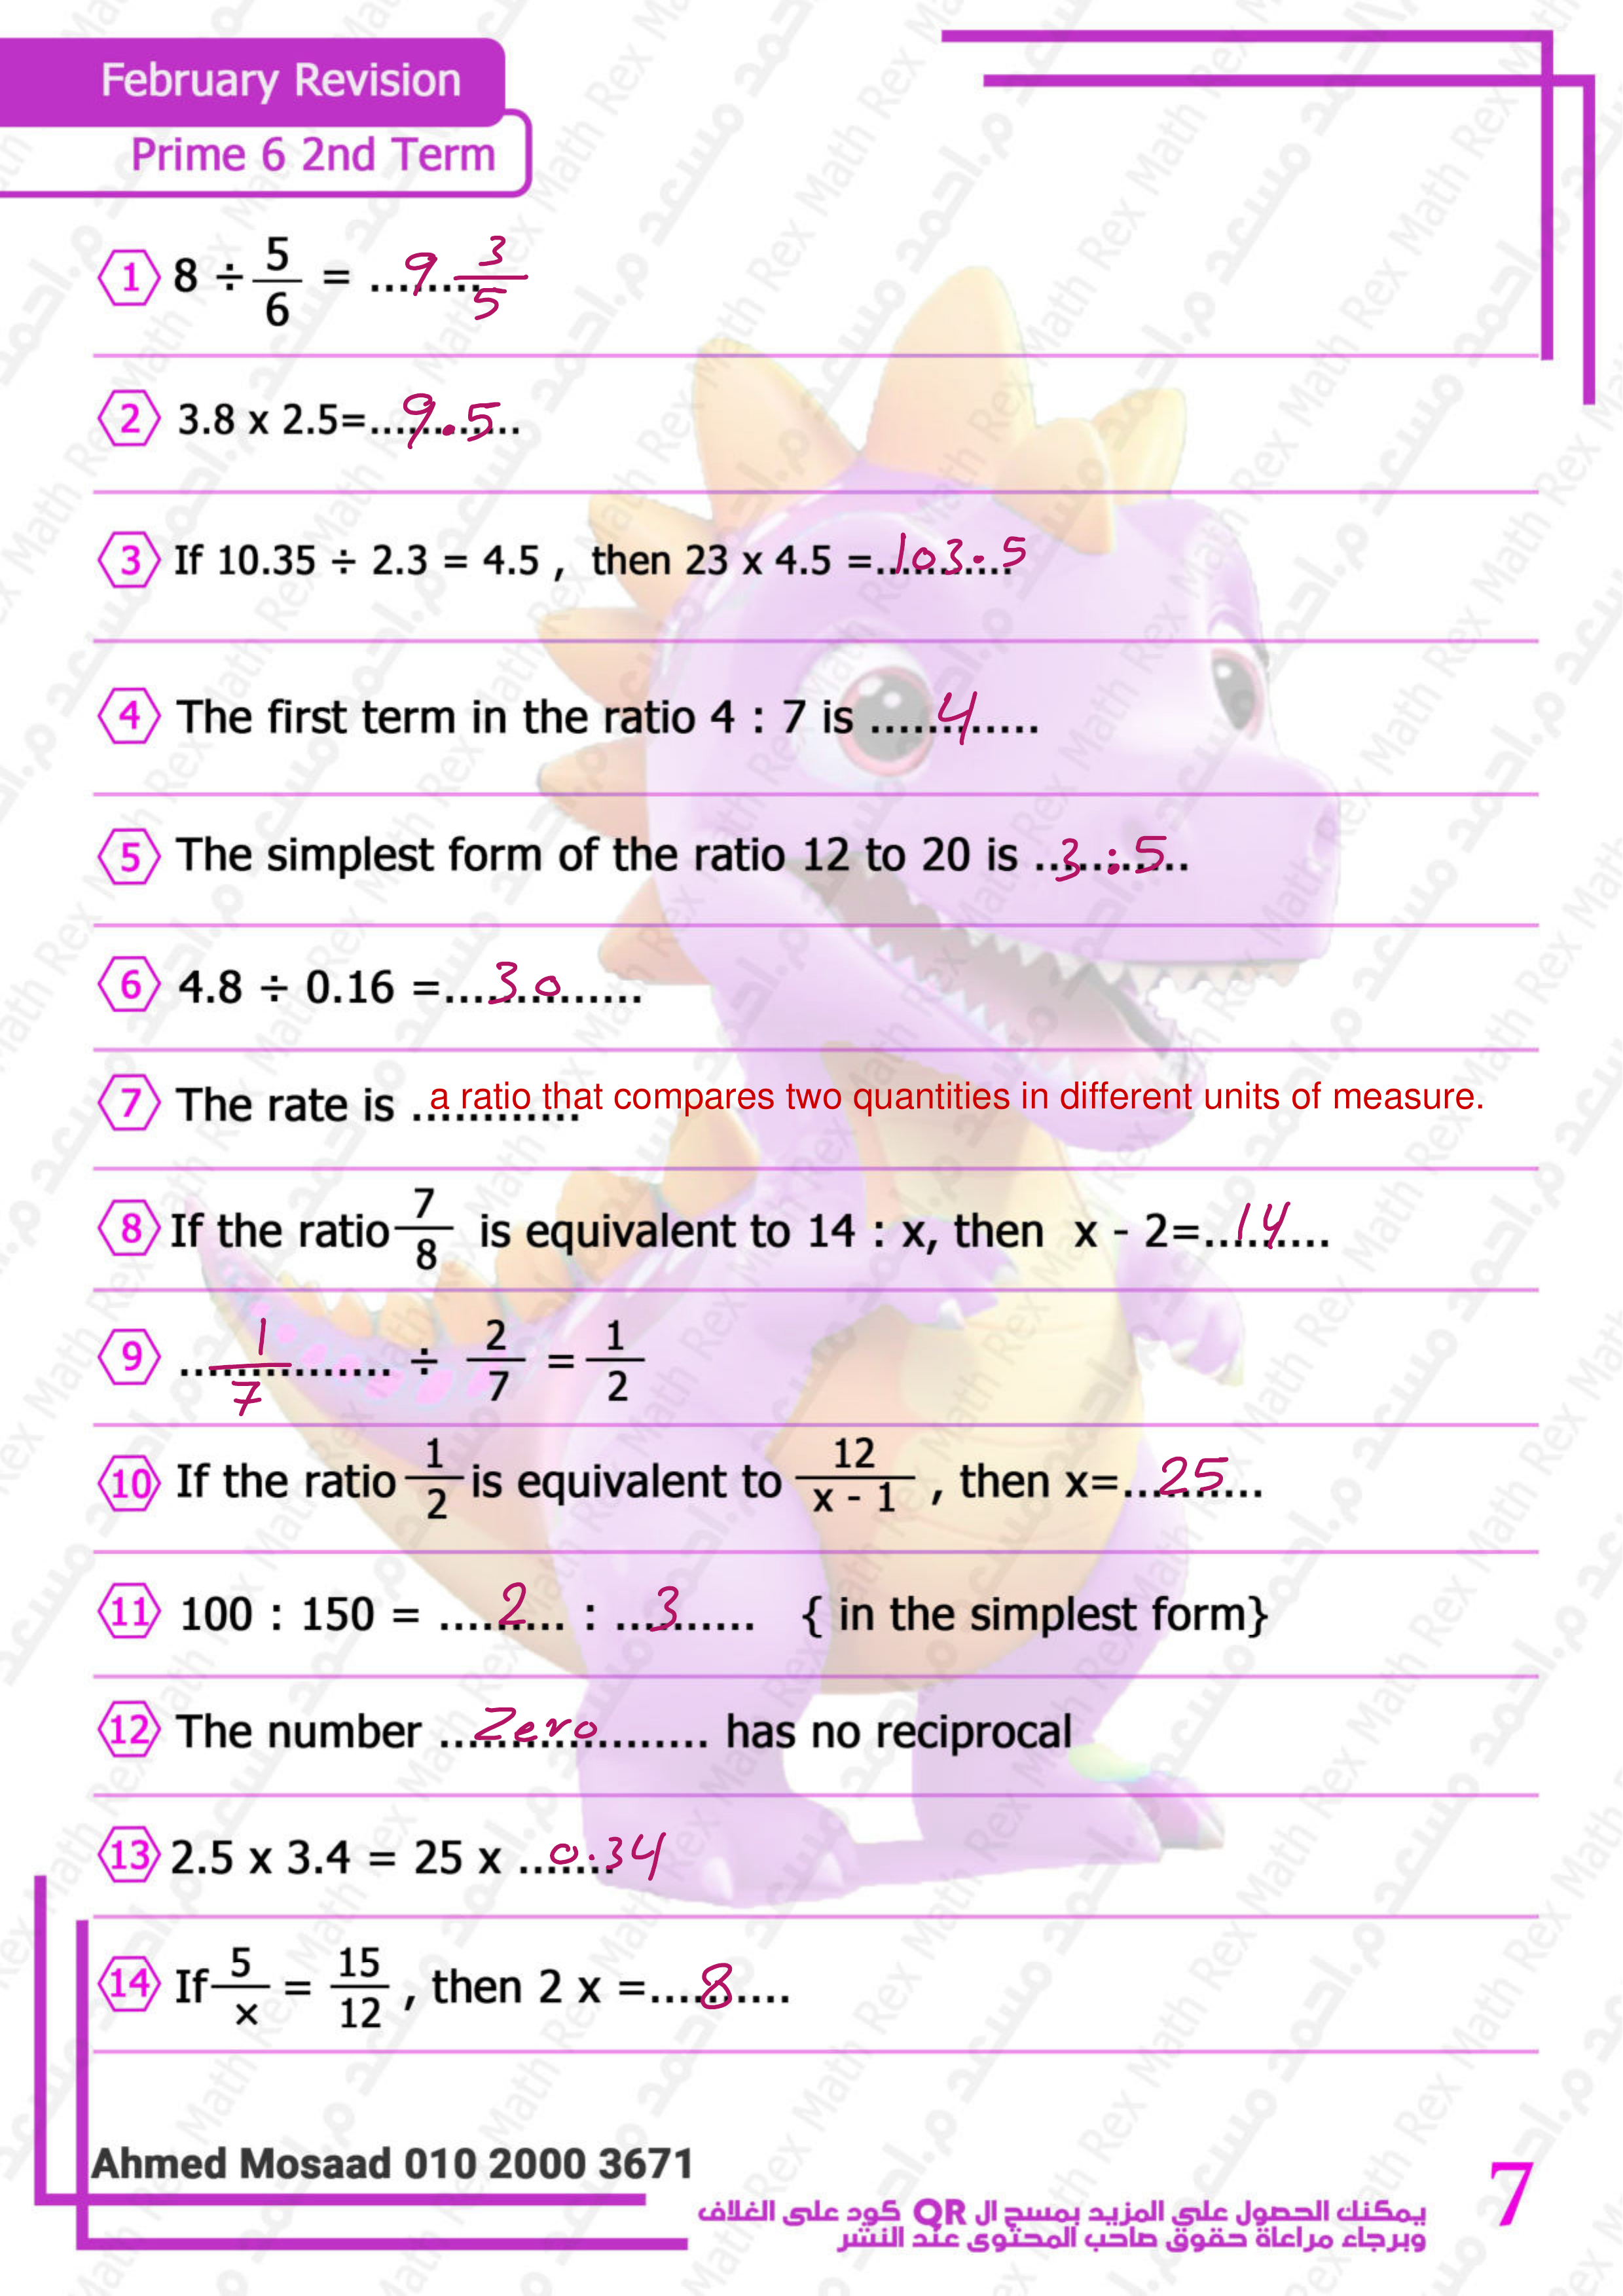 February Revision
Prime 6 2nd Term
1 8 ÷ 5/6 = ........ 9 3/5
2 3.8 x 2.5=............ 9.5
3 If 10.35 ÷ 2.3 = 4.5 , then 23 x 4.5 =........... 103.5
4 The first term in the ratio 4 : 7 is ............ 4
5 The simplest form of the ratio 12 to 20 is ........... 3 : 5
6 4.8 ÷ 0.16 =.............. 30
7 The rate is ............ a ratio that compares two quantities in different units of measure.
8 If the ratio 7/8 is equivalent to 14 : x, then x - 2=......... 14
9 ............... 1/7 ÷ 2/7 = 1/2
10 If the ratio 1/2 is equivalent to 12/(x - 1) , then x=.......... 25
11 100 : 150 = ......... 2 : .......... 3 { in the simplest form}
12 The number ................... Zero has no reciprocal
13 2.5 x 3.4 = 25 x ....... 0.34
14 If 5/x = 15/12 , then 2 x =.......... 8
Ahmed Mosaad 010 2000 3671
يمكنك الحصول علي المزيد بمسح ال QR كود على الغلاف
وبرجاء مراعاة حقوق صاحب المحتوى عند النشر
7
Math Rex
م.احمد مسعد